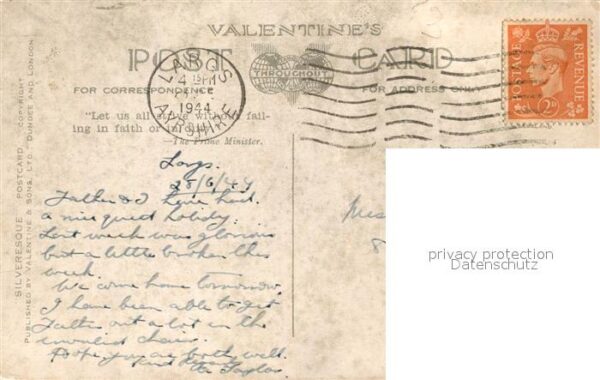 VALENTINE'S
POST CARD
THROUGHOUT
FOR CORRESPONDENCE
FOR ADDRESS ONLY
LARGS
1944
AYRSHIRE
POSTAGE
REVENUE
2D
"Let us all strive without fail-
ing in faith or in duty"
—The Prime Minister.
SILVERESQUE POSTCARD. COPYRIGHT
PUBLISHED BY VALENTINE & SONS, LTD., DUNDEE AND LONDON
Largs.
28/6/44
Father & I have had
a nice quiet holiday.
Last week was glorious
but a little broken this
week.
We come home tomorrow.
I have been able to get
Father out a lot in the
invalid chair.
Hope you are both well.
privacy protection
Datenschutz